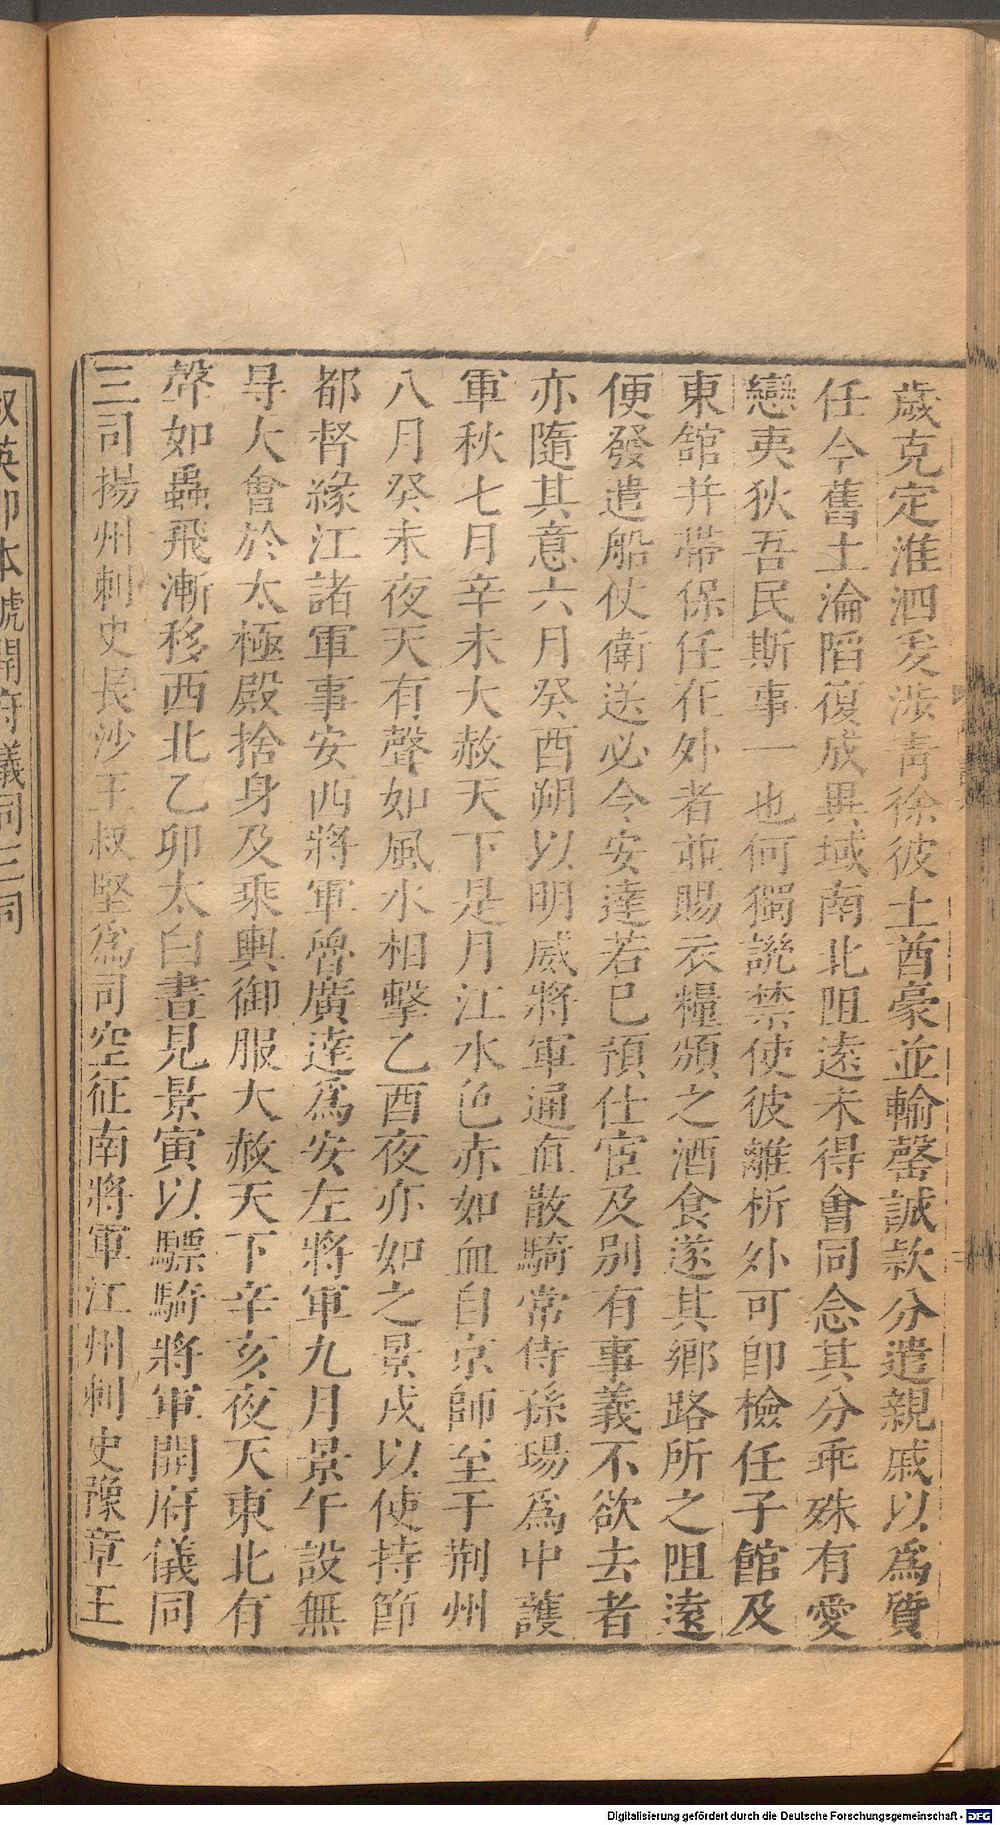 歲克定淮泗爰涉靑徐彼土酋豪並輸罄誠款分遣親戚以爲質
任今舊土淪陷復成異域南北阻遠未得會同念其分乖殊有愛
戀夷狄吾民斯事一也何獨譏禁使彼離析外可卽檢任子館及
東館并帶保任在外者並賜衣糧頒之酒食遂其鄉路所之阻遠
便發遣船仗衛送必令安達若已預仕宦及别有事義不欲去者
亦隨其意六月癸酉朔以明威將軍通直散騎常侍孫瑒爲中護
軍秋七月辛未大赦天下是月江水色赤如血自京師至于荆州
八月癸未夜天有聲如風水相擊乙酉夜亦如之景戌以使持節
都督緣江諸軍事安西將軍魯廣達爲安左將軍九月景午設無
㝵大會於太極殿捨身及乘輿御服大赦天下辛亥夜天東北有
聲如蟲飛漸移西北乙卯太白晝見景寅以驃騎將軍開府儀同
三司揚州刺史長沙王叔堅爲司空征南將軍江州刺史豫章王
叔英卽本號開府儀同三司
Digitalisierung gefördert durch die Deutsche Forschungsgemeinschaft - DFG